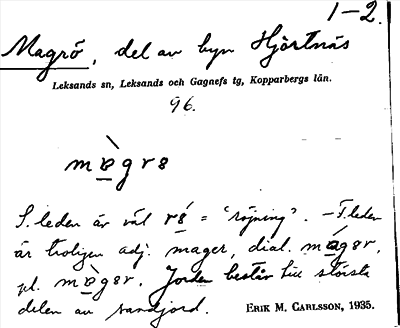 1–2.
Magrö, del av byn Hjörtnäs
Leksands sn, Leksands och Gagnefs tg, Kopparbergs län.
96.
S. leden är väl = "röjning". – F. leden
är troligen adj. mager, dial.
pl. Jorden består till största
delen av sandjord. ERIK M. CARLSSON, 1935.